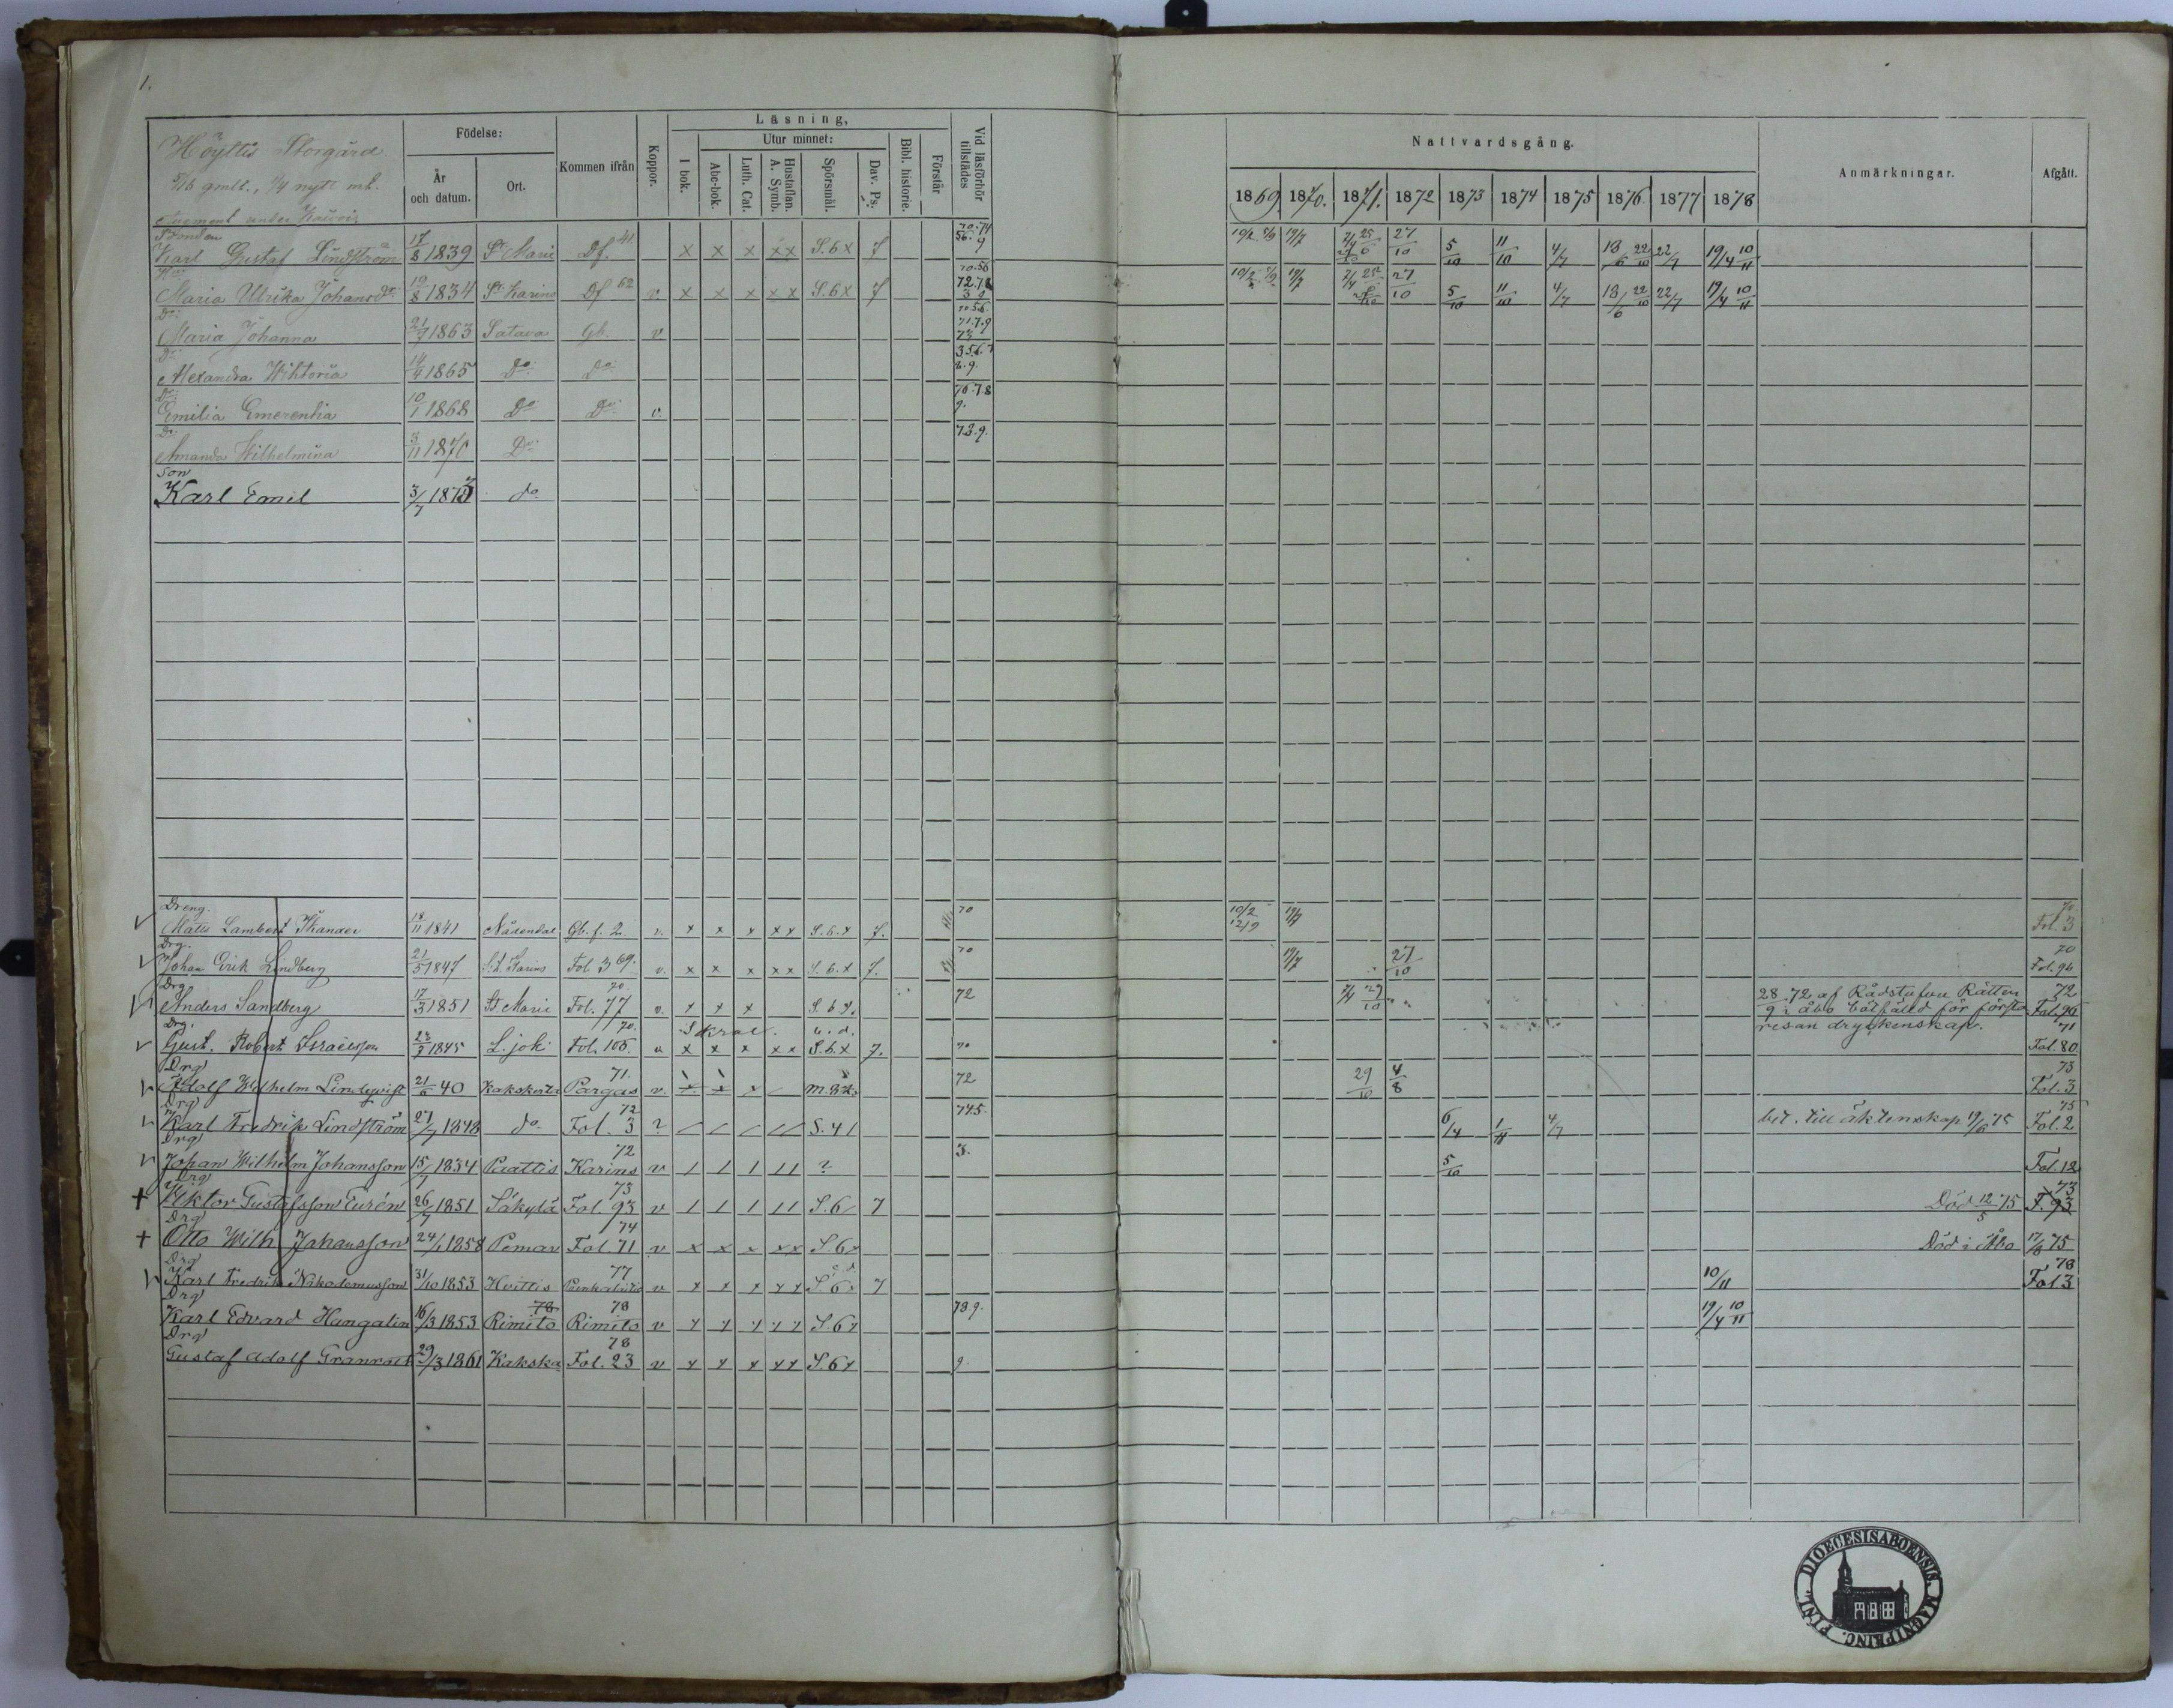 1.
Höyttis Storgård.
5/16 gmlt., 1/4 nytt mt.
Augment under Kauris
Födelse:
År och datum.
Ort.
Kommen ifrån
Koppor.
Läsning,
I bok.
Utur minnet:
Abc-bok.
Luth. Cat.
Hustaflan. A. Symb.
Spörsmål.
Dav. Ps:
Bibl. historie.
Förstår
Vid läsförhör tillstädes
Nattvardsgång.
1869 1870. 1871. 1872 1873 1874 1875 1876 1877 1878
Anmärkningar.
Afgått.
Karl Gustaf Lindström 17/8 1839 St Marie Df. 41. x x x xx S.6x 7 10/2 19/7 27/10 5/10 11/10 4/7 18/6 22/10 22/7 19/4 10/11
Maria Ulrika Johansdr 19/8 1834 St Karins Df 62 v x x x xx S.6x 7 10/2 19/7 27/10 5/10 11/10 4/7 18/6 22/10 22/7 19/4 10/11
Dr:
Maria Johanna 21/7 1863 Satava Gb. v
Dr:
Alexandra Wiktoria 14/4 1865 Do Do
Dr:
Emilia Emerentia 10/1 1868 Do Do v.
Dr:
Amanda Wilhelmina 3/11 1870 Do 73.9.
Son
Karl Emil 3/7 1873 do
Dreng.
Matts Lambert Thander 18/11 1841 Nådendal Gb. f. 2. v. x x x xx S.6.x 7. 70 10/2 12/9 19/7 70. Fol. 3
Drg.
Johan Erik Lindberg 21/5 1847 St. Karins Fol. 3 69. v. x x x xx S.6.x 7. 70 19/7 27/10 70 Fol. 96
Drg.
Anders Sandberg 17/3 1851 St Marie 70. Fol. 77 v. x x x S.6 72 28/9 72 af Rådstufvu Rätten i Åbo bötfälld för första resan dryckenskap. 72 Fol. 96
Drg.
Gust. Robert Israelsson 1845 L. joki 70. Fol. 105. x x x xx S.6.x 7. 70 71 Fol. 80
Drg
Adolf Wilhelm Lindqvist 21/6 40 Kakskerta 71. Pargas v. 72 29/10 4/8 73 Fol. 3
Drg
Karl Fredrik Lindström 27/7 1848 do 72 Fol. 3 ? S. 41 745. 6/4 1/11 4/7 bet. till äktenskap 19/6 75 75 Fol. 2
Drg
Johan Wilhelm Johansson 15/7 1834 Paattis 72 Karins v 1 1 1 11 ? 3. 5/10 Fol. 12
Drg
Wiktor Gustafsson Eurén 26/7 1851 Säkylä 73 Fol. 93 v 1 1 1 11 S. 6 7 Död 12/5 75 73 F. 93
Drg
Otto Wilh Johansson 24/1 1858 Pemar 74 Fol. 71 v x x x xx S.6x Död i Åbo 17/8 75
Drg
Karl Fredrik Nikodemusson 31/10 1853 Hvittis 77 v x x x xx S. 6 7 10/11 78 Fol. 3
Drg
Karl Edvard Hangalin 16/3 1853 Rimito 78 Rimito v x x x xx S.6x 789. 19/4 10/11
Drg
Gustaf Adolf Granroth 29/3 1861 Kakska 78 Fol. 23 v x x x xx S.6x 9.
DIOECESIS ABOENSIS. MAGNI PRINC. FINL.